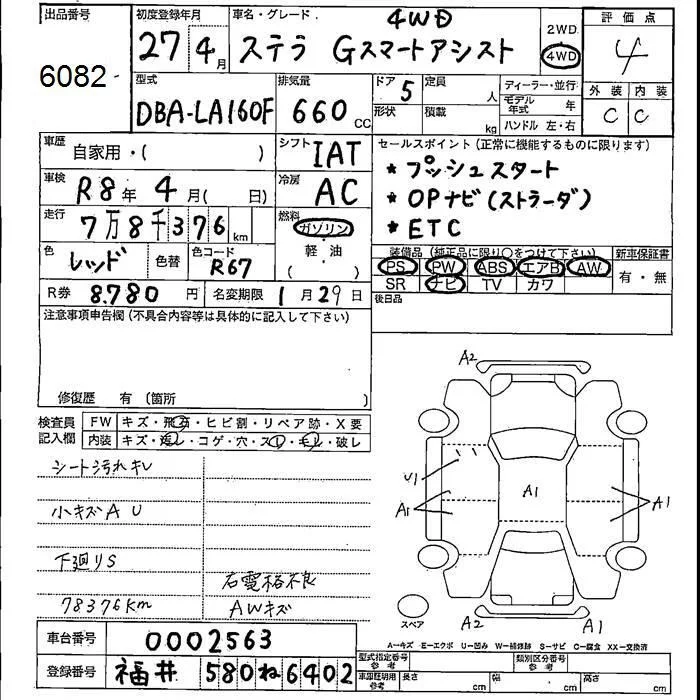 出品番号
6082
初度登録年月
27 4月
車名・グレード
4WD
ステラ Gスマートアシスト
2WD
4WD
評価点
4
外装 内装
C C
型式
DBA-LA160F
排気量
660 CC
ドア
5
形状
定員
人
積載
kg
ディーラー・並行
モデル年式 年
ハンドル 左・右
車歴
自家用・( )
シフト
IAT
セールスポイント(正常に機能するものに限ります)
* プッシュスタート
* OPナビ(ストラーダ)
* ETC
車検
R8年 4月( 日)
冷房
AC
走行
7万8千376km
燃料
ガソリン
軽・油
( )
色
レッド
色替
色コード
R67
装備品(純正品に限り○をつけて下さい)
PS PW ABS エアB AW
SR ナビ TV カワ
新車保証書
有・無
後日品
R券 8,780円
名変期限 1月29日
注意事項申告欄(不具合内容等は具体的に記入して下さい)
修復歴 有(箇所 )
検査員記入欄
FW キズ・飛石・ヒビ割・リペア跡・X要
内装 キズ・汚レ・コゲ・穴・スレ・モレ・破レ
シート汚れキレ
小キズAU
下廻りS
78376Km
右電格不良
AWキズ
A2
U1
A1
A1
A1
A2
A1
スペア
A=キズ E=エクボ U=凹み W=補修跡 S=サビ C=腐食 XX=交換済
車台番号
0002563
登録番号
福井 580ね6402
型式指定番号
参考
類別区分番号
参考
車庫証明用
参考
長さ cm
幅 cm
高さ cm